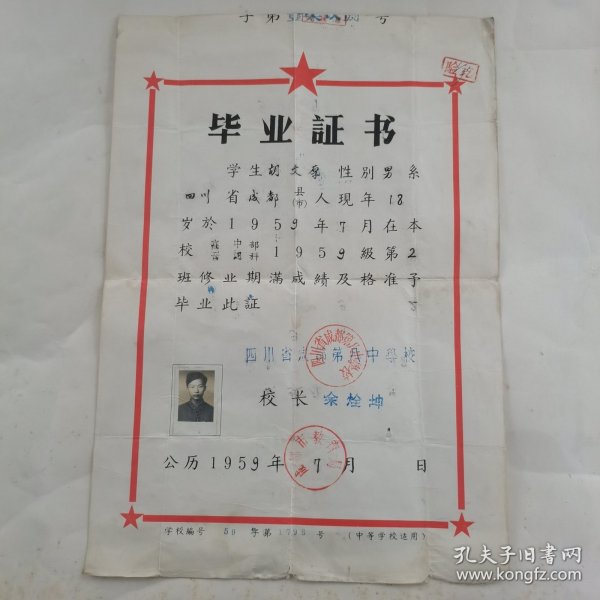 字第 号
验讫
毕业証书
学生胡文 性别男系
四川省成都县(市)人现年18
岁於1959年7月在本
校高中部1959级第2
班修业期满成绩及格准予
毕业此証
四川省成都第八中学校
校长
公历1959年7月 日
学校编号 59 字第 号 (中等学校适用)
孔夫子旧书网
www.kongfz.com